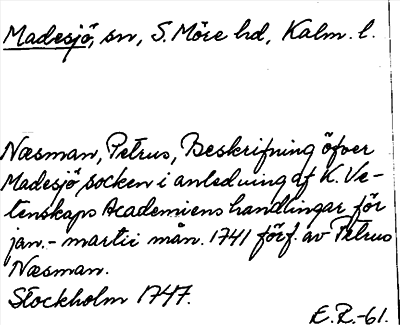 Madesjö, sn, S. Möre hd, Kalm. l.
Næsman, Petrus, Beskrifning öfver
Madesjö socken i anledning af K. Ve-
tenskaps Academiens handlingar för
jan.- martii mån. 1741 förf. av Petrus
Næsman.
Stockholm 1747.
E.R.-61.